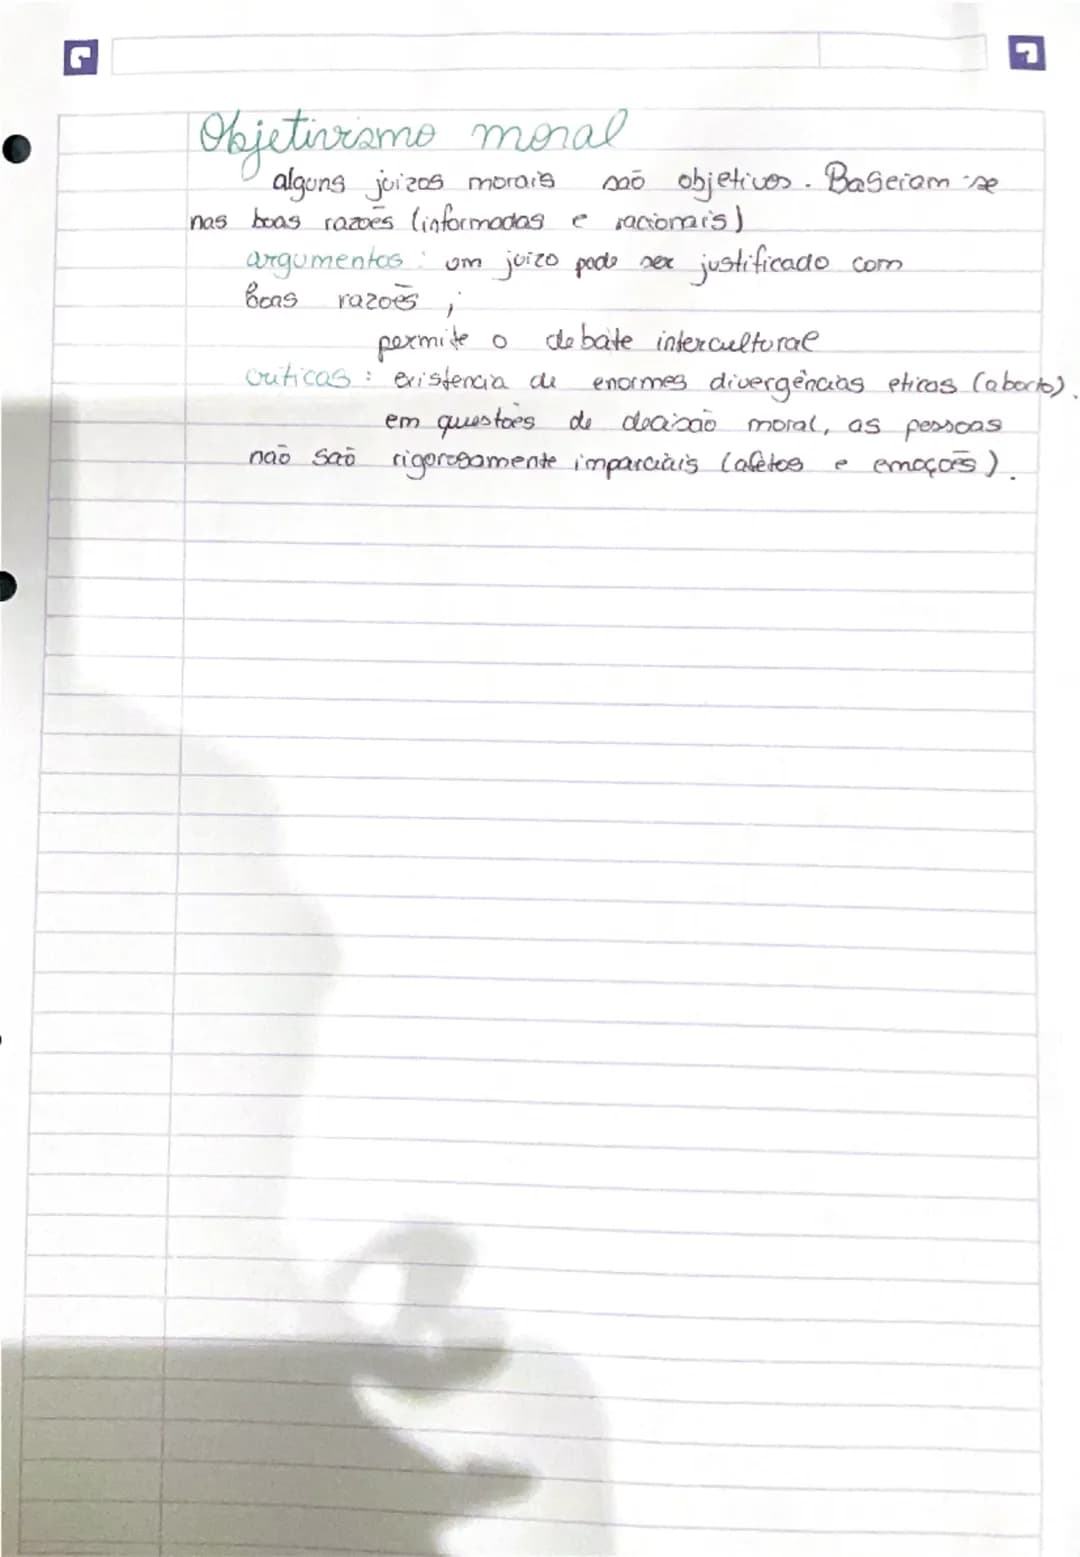 Objetivismo moral
alguns juizos morais são objetivos. Baseiam-se
nas boas razoēs (informadas e racionais)
argumentos: um juizo pode ser justificado com
boas razoēs;
permite o debate intercultural
criticas: existencia de enormes divergências eticas (aborto).
em questoēs de decisão moral, as pessoas
não saō rigorosamente imparciais (afetos e emoçoēs).